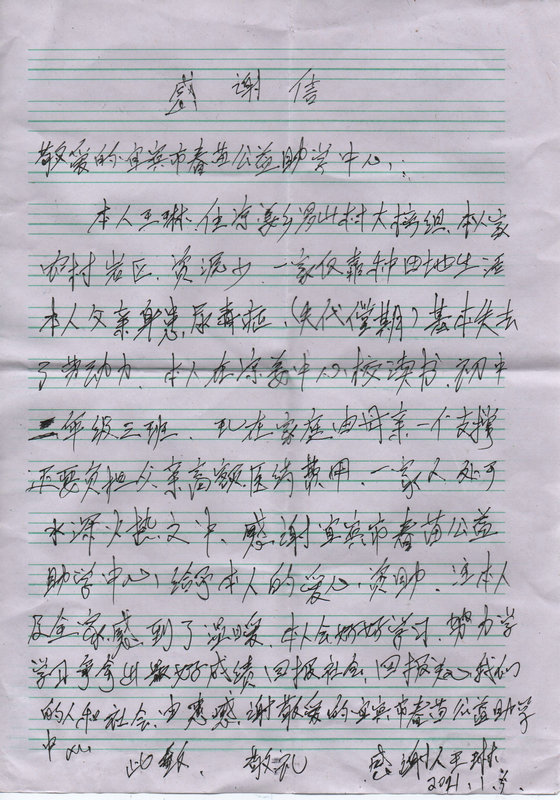 感谢信
敬爱的宜宾市春苗公益助学中心:
本人王琳,住凉姜乡 村大 组.本人家
农村岩区.资源少.一家仅靠种田地生活
本人父亲身患尿毒症,(失代偿期)基本失去
了劳动力.本人在凉姜中心校读书.初中
二年级三班.现在家庭由母亲一个支撑
还要负担父亲高额医药费用.一家人处于
水深火热之中.感谢宜宾市春苗公益
助学中心,给予本人的爱心资助.让本人
及全家感到了温暖.本人会好好学习.努力学
学习争拿出最好成绩.回报社会.回报 我们
的人和社会. 感谢敬爱的宜宾市春苗公益助学
中心
此致. 敬礼 感谢人王琳
2021.1.5.